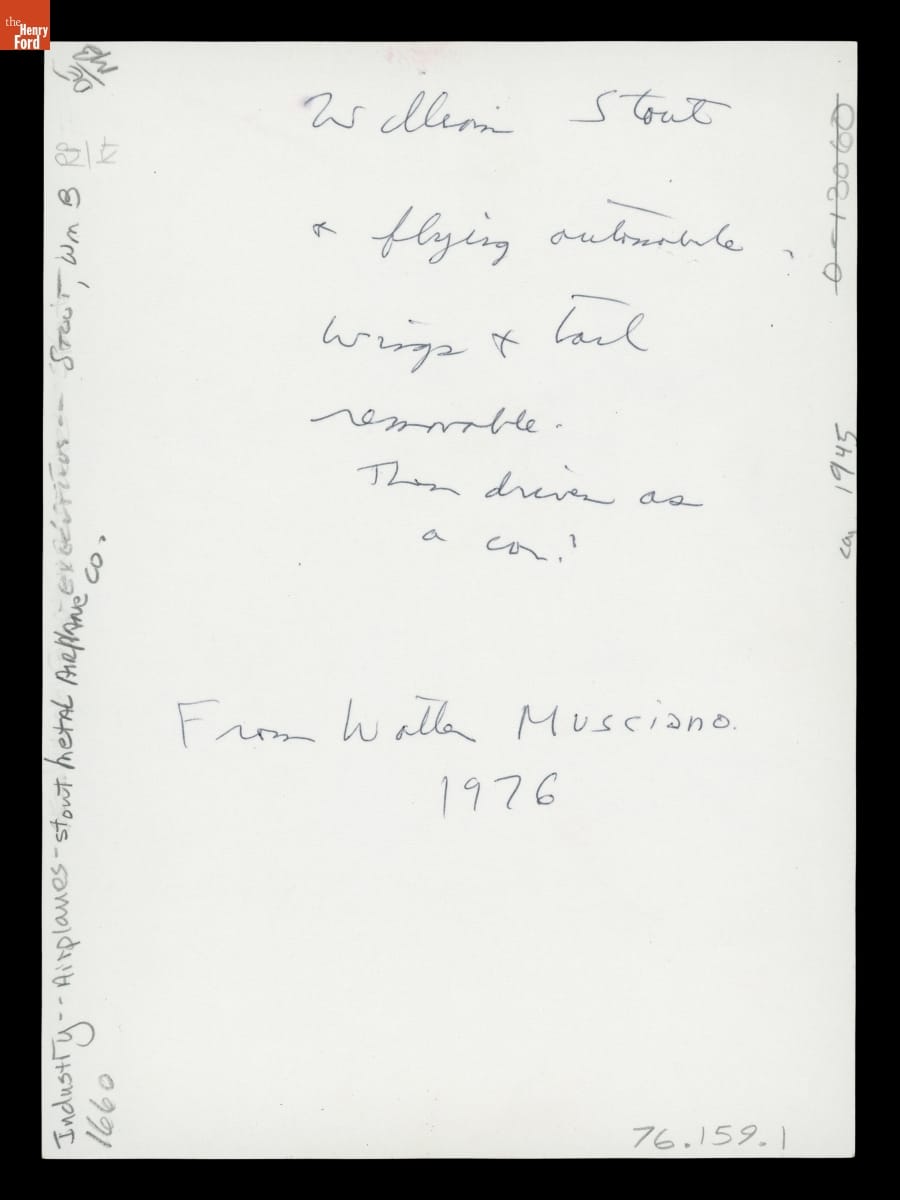 the
Henry
Ford
William Stout
& flying automobile.
Wings & tail
removable.
Then driven as
a car!
From Walter Musciano.
1976
76.159.1
Industry -- Airplanes - Stout Metal Airplane Co.
- Executives -- Stout, Wm B
1660
0-13060
ca. 1945